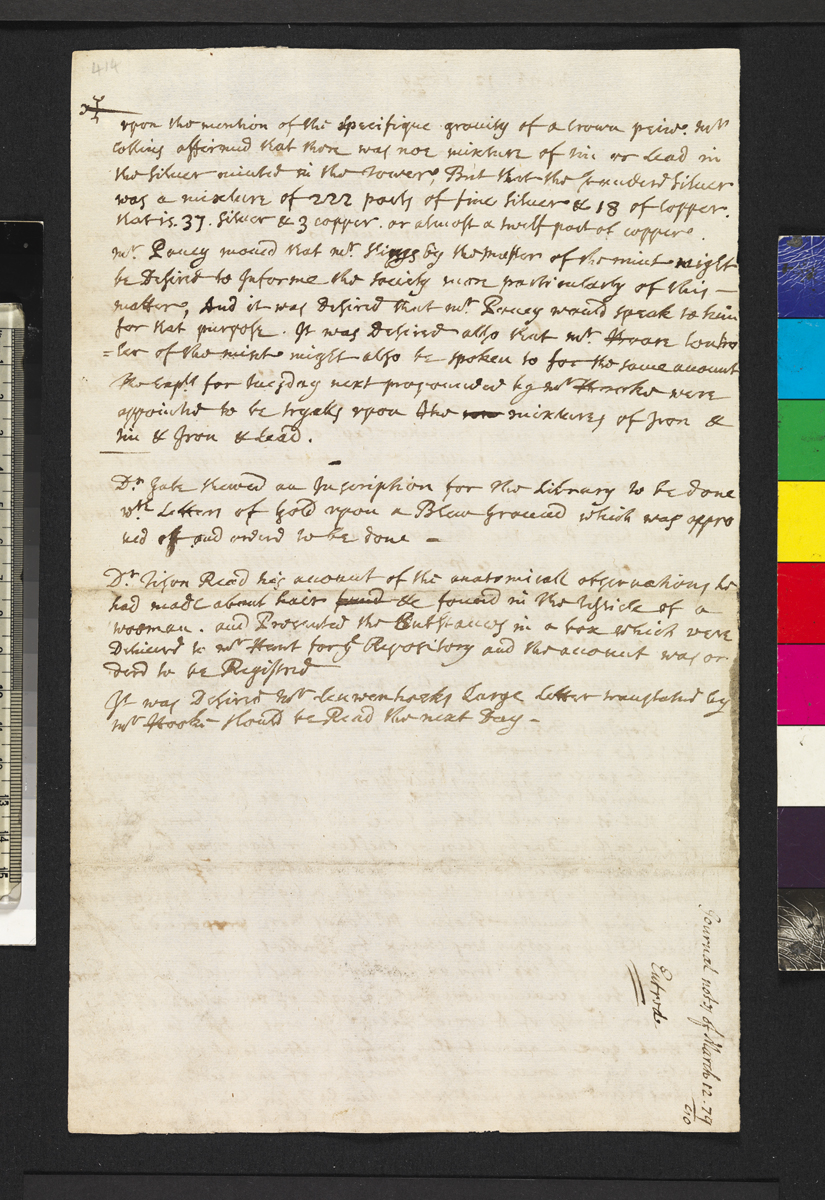 414
upon the mention of the specifique gravity of a Crown peice. Mr
Collins affirmed that there was noe mixture of tin or Lead in
the Silver minted in the tower, But that the Standerd Silver
was a mixture of 222 parts of fine Silver & 18 of Copper.
that is. 37. Silver & 3 copper. or almost a twelf part of copper.
mr. Pacey moued that mr. Slingsby the master of the mint might
be Desired to Informe the society more particularly of this —
matter, And it was desired that mr. Pacey would speak to him
for that purpose. It was Desired also that mr. Hoare Contro
=ler of the mint might also be spoken to for the same account
the Expts for tuesday next propounded by mr Hooke were
appointed to be tryalls upon the mixtures of Iron &
tin & Iron & Lead.
Dr. Gale shewed an Inscription for the Library to be done
wth Letters of Gold upon a Blew Ground which was appro
ued off and orderd to be done —
Dr. Tison Read his account of the anatomicall observations he
had made about hair found &c found in the testicle of a
wooman. and Presented the Substances in a box which were
Deliuerd to mr Hunt for ye Repository and the account was or
derd to be Registred
It was Desired mr Leuwenhoeks Large Letter translated by
mr Hooke should be Read the next Day —
Journal notes of March 12. 79/80
Entred.